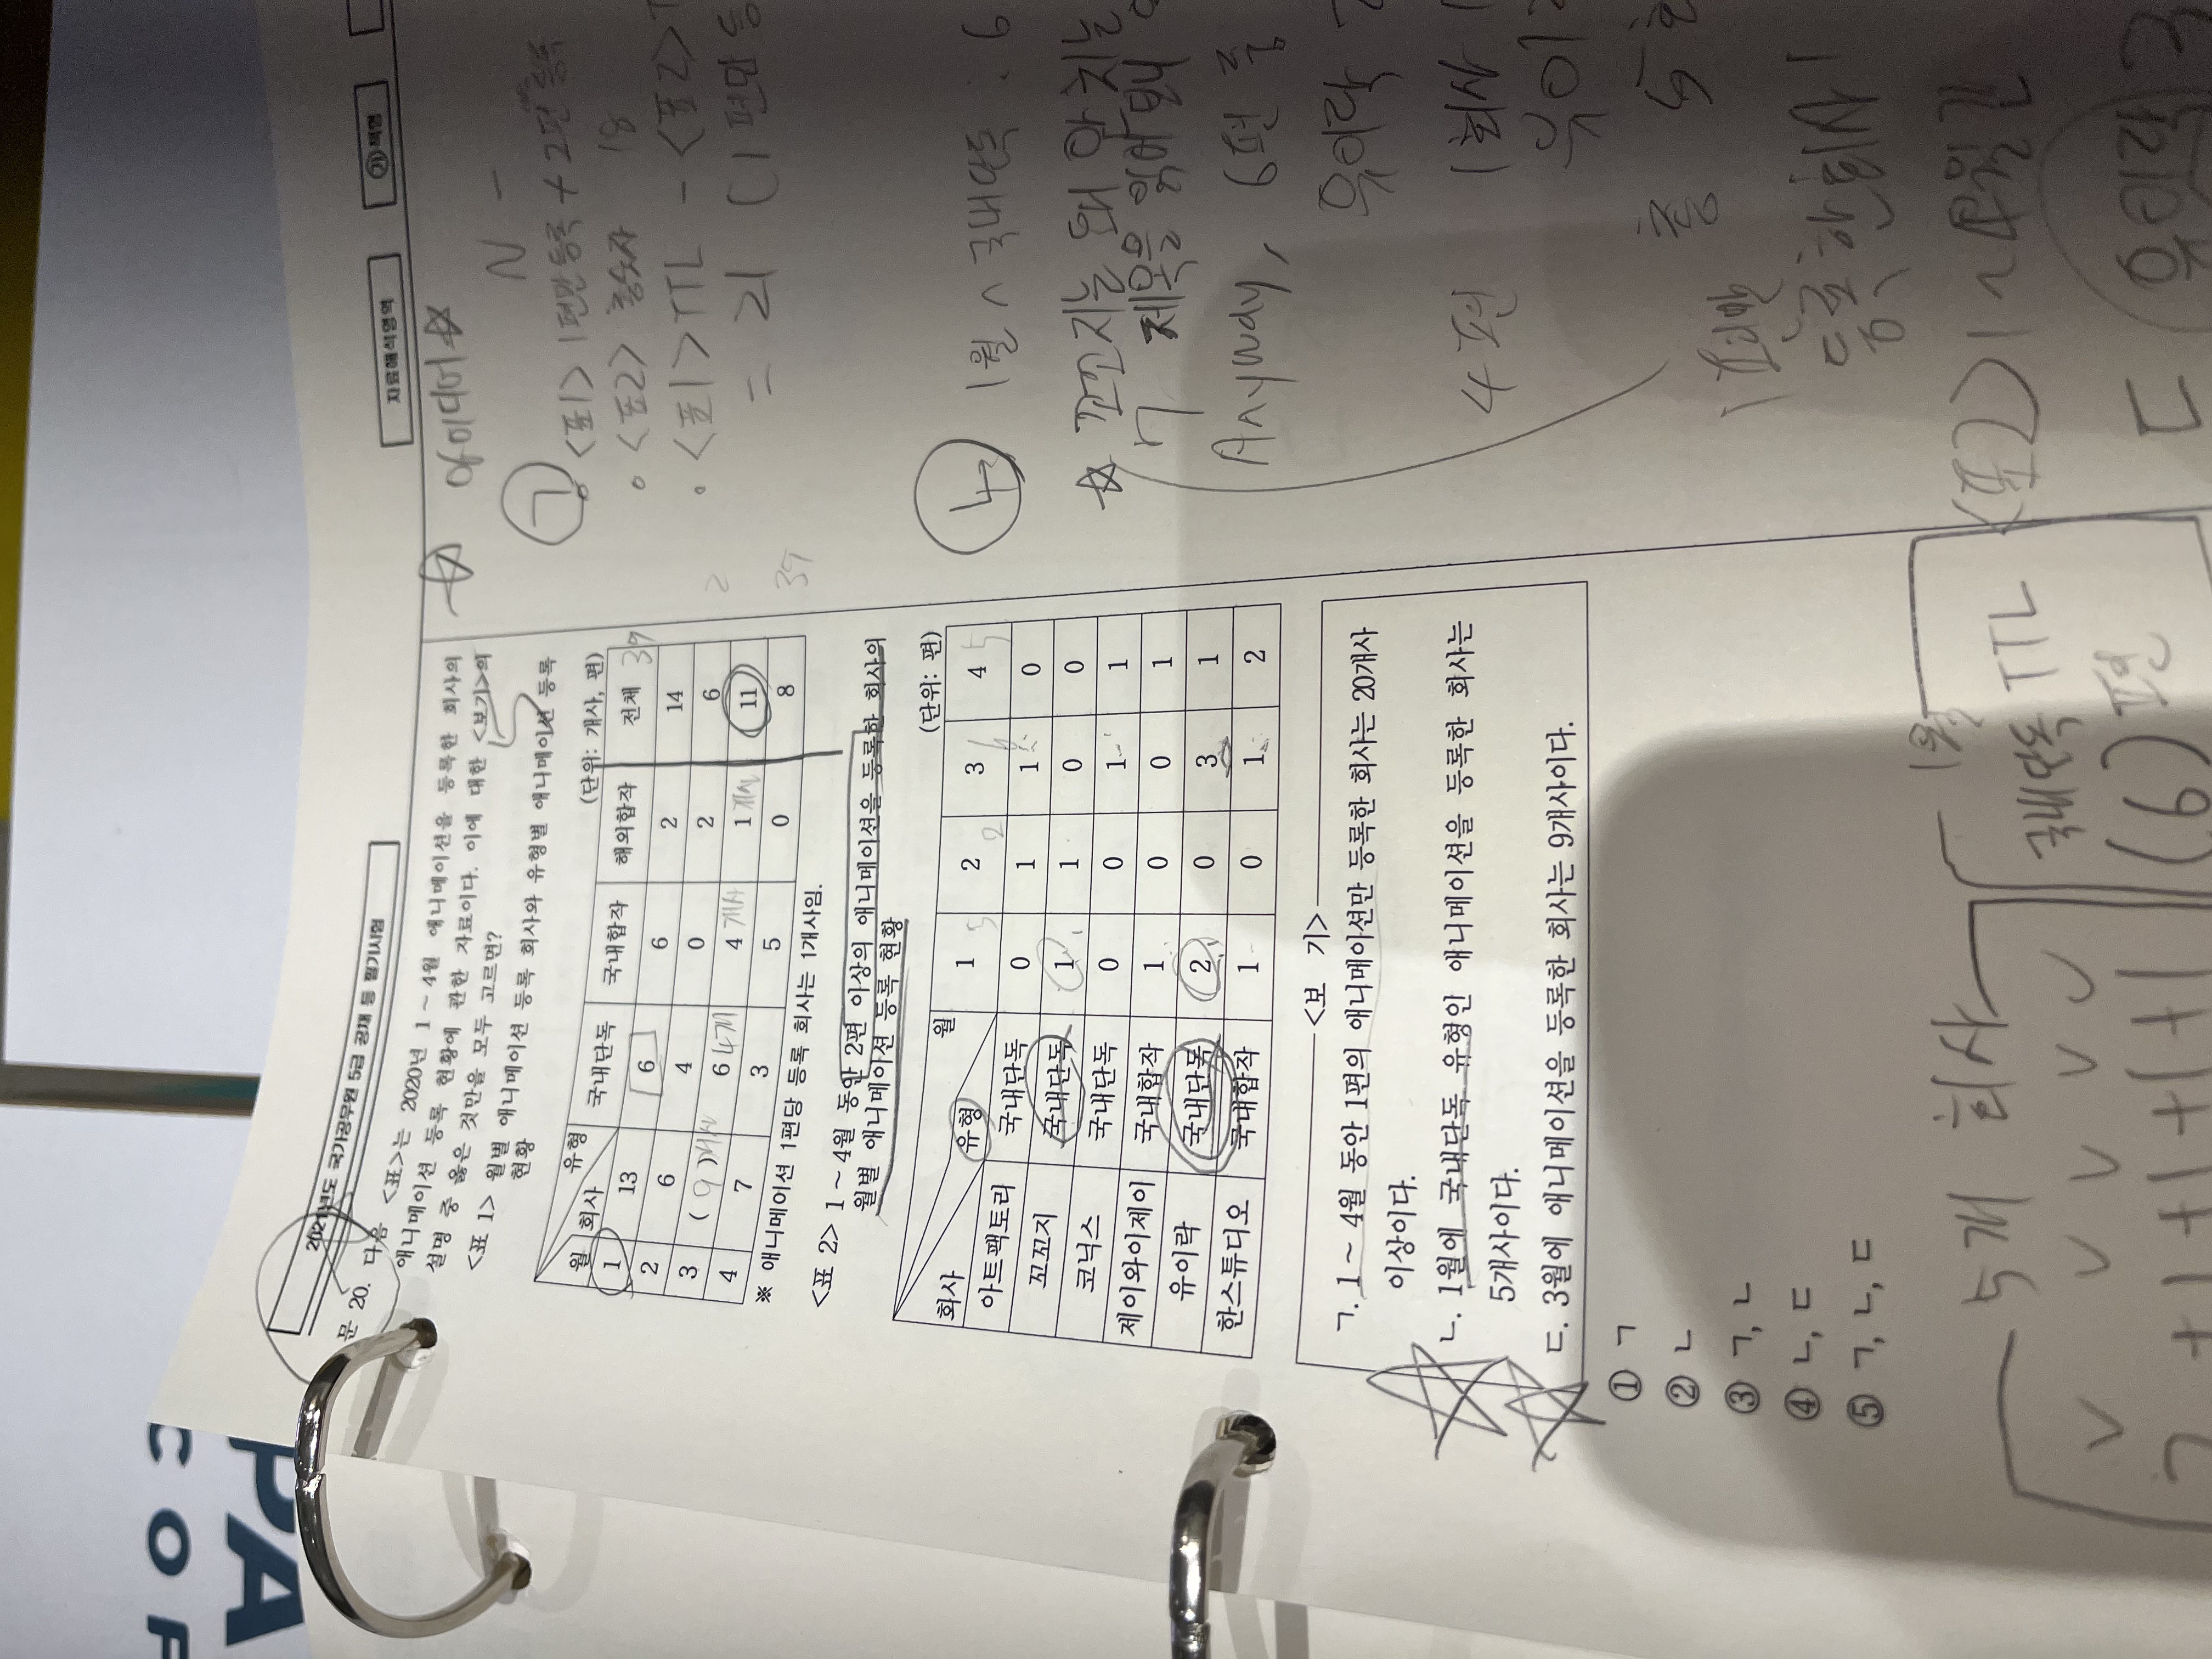 2021년도 국가공무원 5급 공채 등 필기시험
자료해석영역
㉮책형
문 20. 다음 <표>는 2020년 1~4월 애니메이션을 등록한 회사의
애니메이션 등록 현황에 관한 자료이다. 이에 대한 <보기>의
설명 중 옳은 것만을 모두 고르면?
<표 1> 월별 애니메이션 등록 회사와 유형별 애니메이션 등록
현황
(단위: 개사, 편)
월 회사 유형 국내단독 국내합작 해외합작 전체 39
1 13 6 6 2 14
2 6 4 0 2 6
3 (9)개사 6 4개 4 개사 1 개사 11
4 7 3 5 0 8
※ 애니메이션 1편당 등록 회사는 1개사임.
2
39
<표 2> 1~4월 동안 2편 이상의 애니메이션을 등록한 회사의
월별 애니메이션 등록 현황
(단위: 편)
회사 유형 월 1 5 2 2 3 6 4 5
아트팩토리 국내단독 0 1 1 0
꼬꼬지 국내단독 1 1 0 0
코닉스 국내단독 0 0 1 1
제이와이제이 국내합작 1 0 0 1
유이락 국내단독 2 0 3 1
한스튜디오 국내합작 1 0 1 2
<보 기>
ㄱ. 1~4월 동안 1편의 애니메이션만 등록한 회사는 20개사
이상이다.
ㄴ. 1월에 국내단독 유형인 애니메이션을 등록한 회사는
5개사이다.
ㄷ. 3월에 애니메이션을 등록한 회사는 9개사이다.
① ㄱ
② ㄴ
③ ㄱ, ㄴ
④ ㄴ, ㄷ
⑤ ㄱ, ㄴ, ㄷ
5개 회사
1월
국내단독 TTL
(6)편
아이디어
ㄱ <표1> 1편만 등록 + 2편
<표2> 총숫자 18
<표1> TTL - <표2> T
= 21 (1편만 등
ㄴ 1월 ∧ 국내단독 : 6
꼬꼬지는 왜 안 치는
ㄱ 제목을 읽어봐
Anyway, 6편 중
유이락 2
4편 1회사 1
유이
중
1편만
등록한 회사 1
<표2> 1~4월간
ㄷ 유이락 3
PA